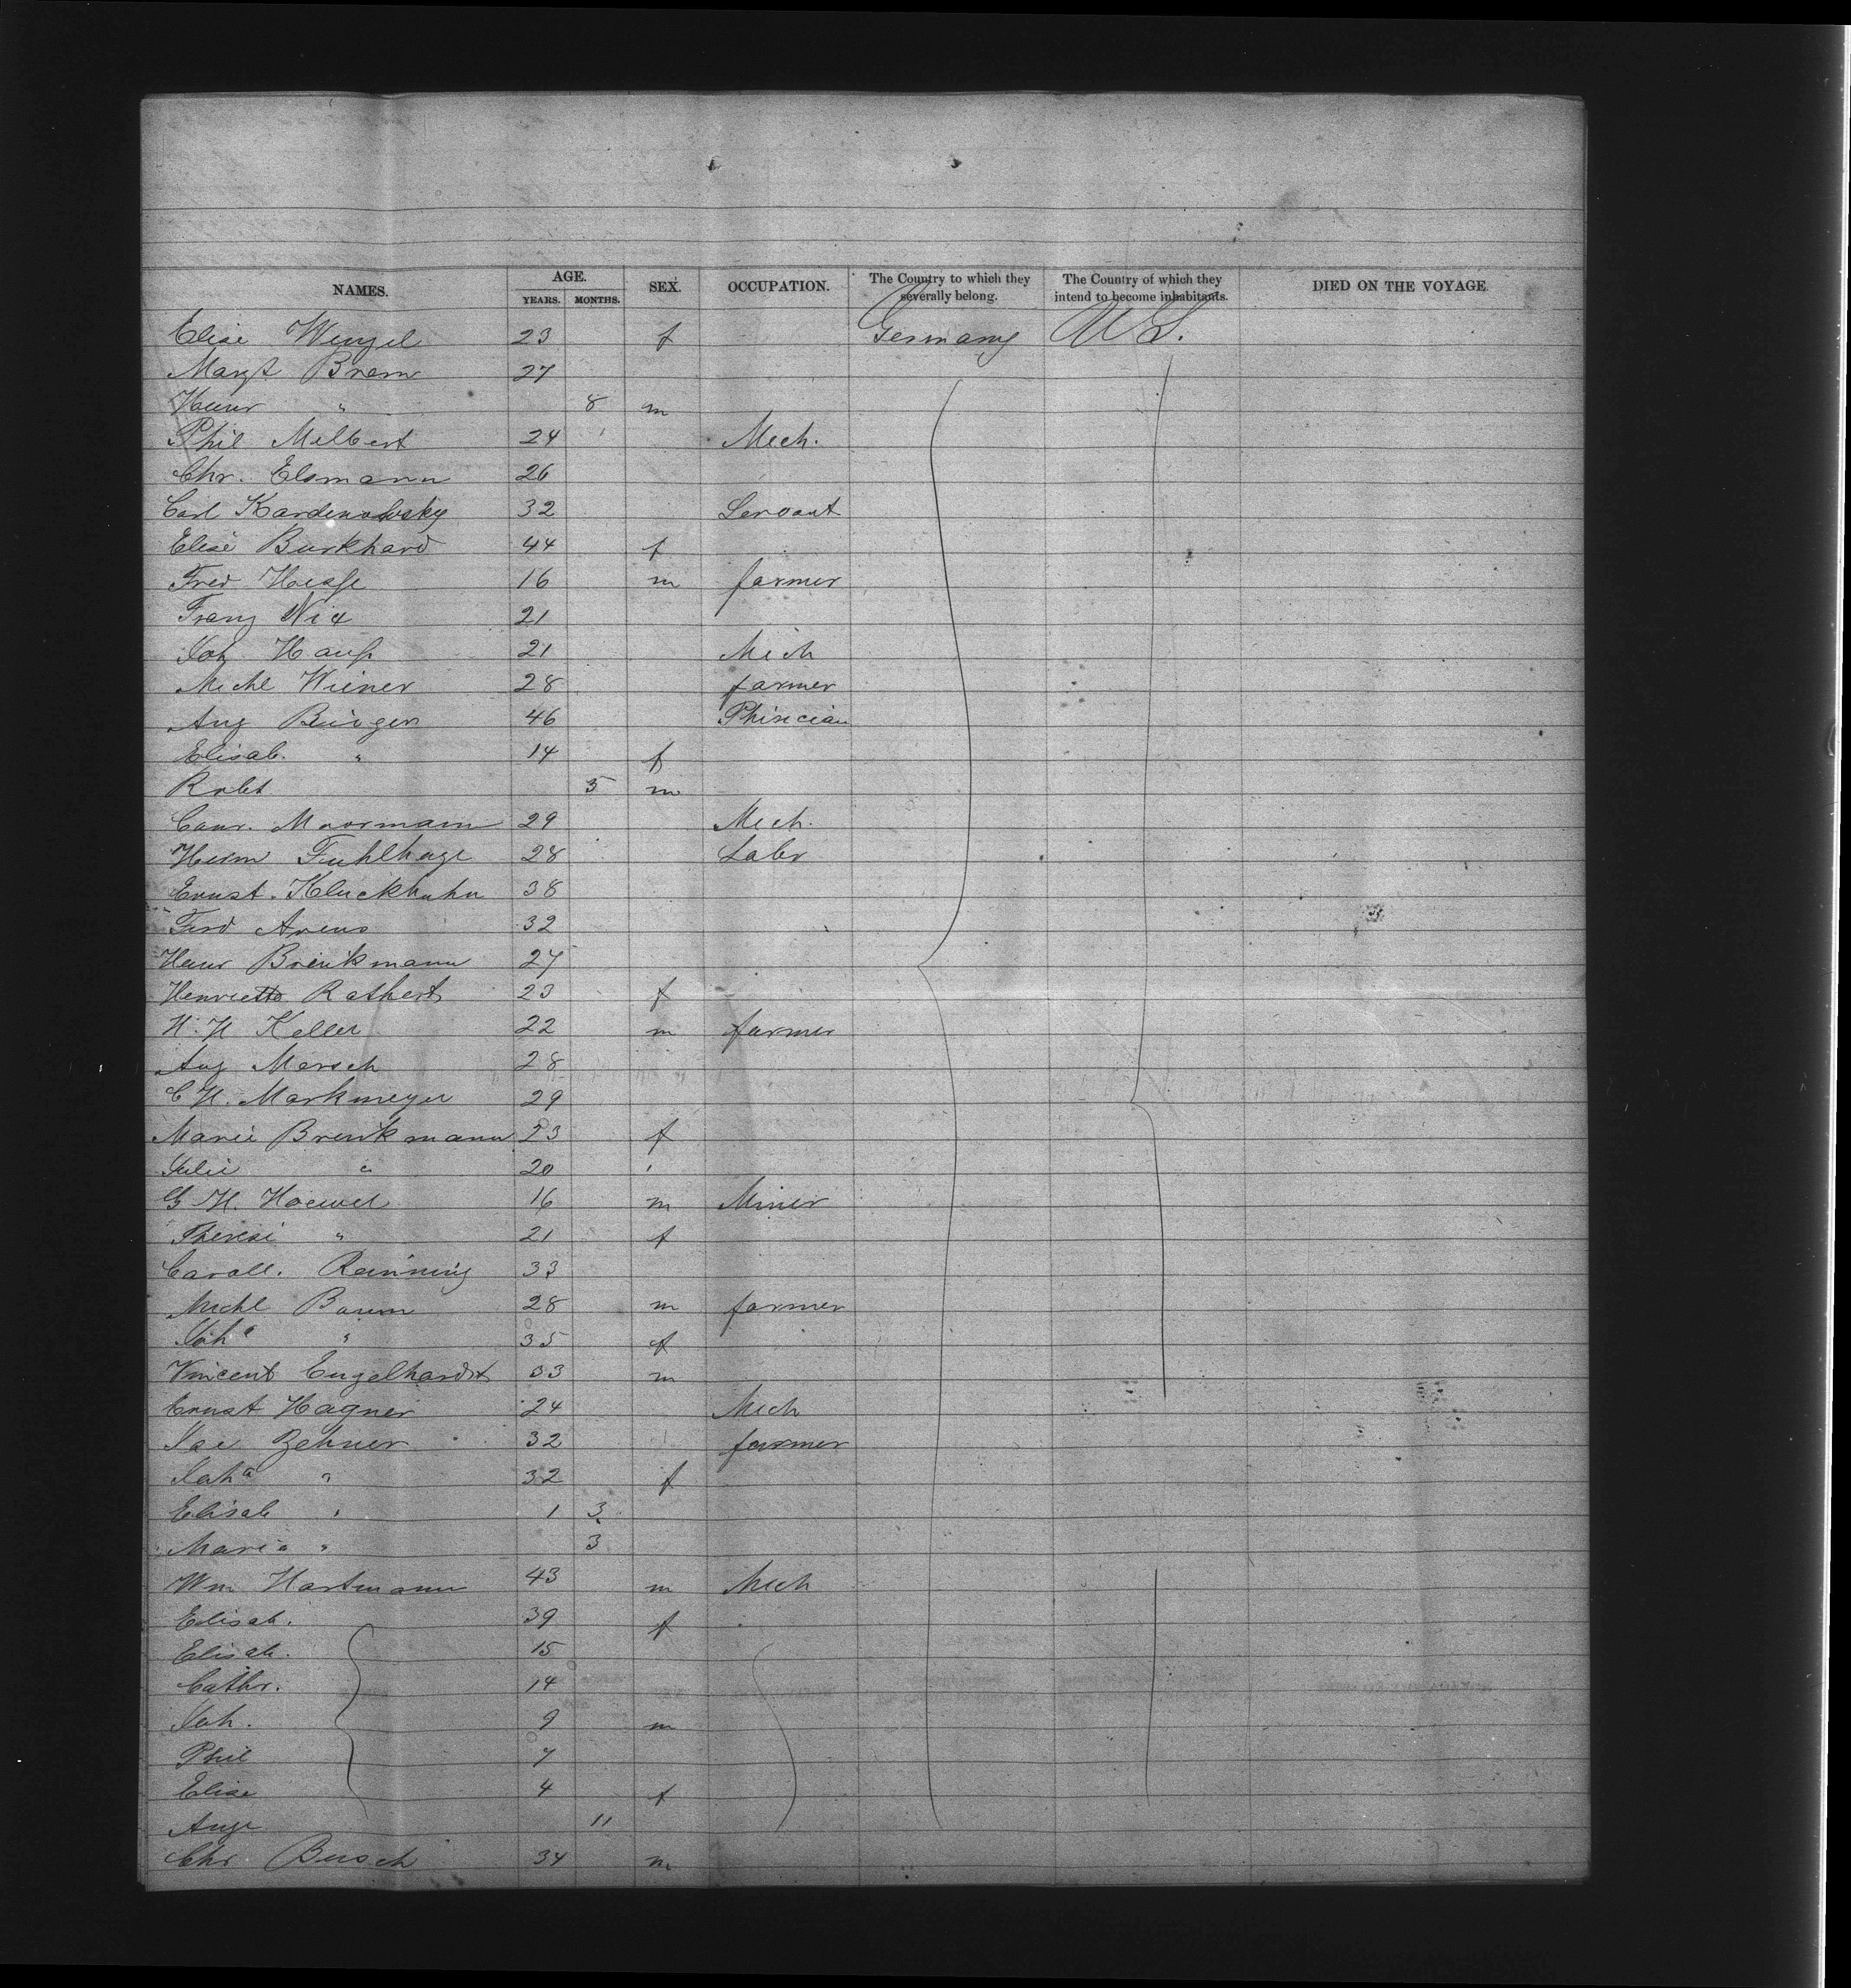 NAMES. AGE. YEARS. MONTHS. SEX. OCCUPATION. The Country to which they severally belong. The Country of which they intend to become inhabitants. DIED ON THE VOYAGE.
Elise Wenzel 23 f Germany U S.
Margt Brem 27
Heinr " 8 m
Phil Melbert 24 Mech.
Chr. Elsmann 26
Carl Kardenowsky 32 Servant
Elise Burkhard 44 f
Fred Hesse 16 m farmer
Franz Nix 21
Joh Hauss 21 Mech
Michl Wiener 28 farmer
Aug Bürger 46 Phisician
Elisab. " 14 f
Robt 5 m
Conr. Moormann 29 Mech.
Herm Fuhlhage 28 Labr
Ernst. Kluckhuhn 38
Ferd Arens 32
Heinr Brinkmann 27
Henrietta Rathert 23 f
H. H Keller 22 m farmer
Aug Mersch 28
C H. Markmeyer 29
Marie Brinkmann 23 f
Julie " 20 '
G H. Hoewel 16 m Miner
Therese " 21 f
Caroll. Reinning 33
Michl Baum 28 m farmer
Joha " 35 f
Vincent Engelhardt 33 m
Ernst Hagner 24 Mech
Jac Zehner 32 farmer
Joha " 32 f
Elisab " 1 3
Maria " 3
Wm Hartmann 43 m Mech
Elisab. 39 f
Elisab. 15
Cathr. 14
Joh. 9 m
Phil 7
Elise 4 f
Auge 11
Chr Busch 34 m